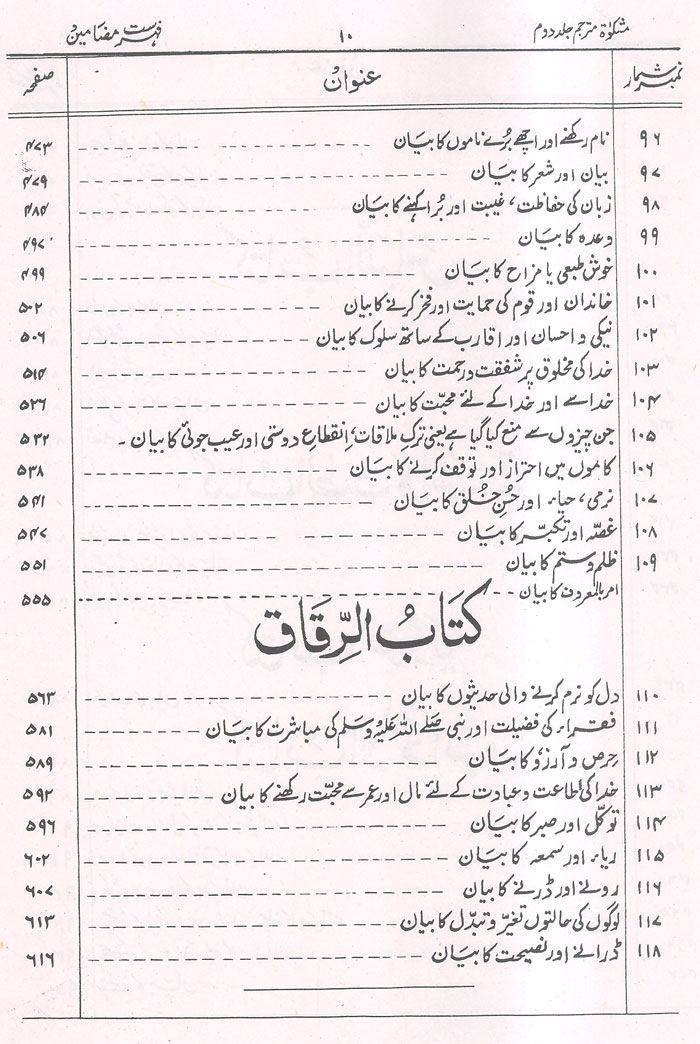 مشکوٰۃ مترجم جلد دوم ۱۰ فہرست مضامین
نمبر شمار عنوان صفحہ
۹۶ نام رکھنے اور اچھے بُرے ناموں کا بیان ۴۷۳
۹۷ بیان اور شعر کا بیان ۴۷۹
۹۸ زبان کی حفاظت، غیبت اور بُرا کہنے کا بیان ۴۸۴
۹۹ وعدہ کا بیان ۴۹۷
۱۰۰ خوش طبعی یا مزاح کا بیان ۴۹۹
۱۰۱ خاندان اور قوم کی حمایت اور فخر کرنے کا بیان ۵۰۲
۱۰۲ نیکی و احسان اور اقارب کے ساتھ سلوک کا بیان ۵۰۶
۱۰۳ خدا کی مخلوق پر شفقت و رحمت کا بیان ۵۱۴
۱۰۴ خدا سے اور خدا کے لئے محبّت کا بیان ۵۲۶
۱۰۵ جن چیزوں سے منع کیا گیا ہے یعنی ترکِ ملاقات، اِنقطاع دوستی اور عیب جوئی کا بیان ۵۳۲
۱۰۶ کاموں میں احتراز اور توقف کرنے کا بیان ۵۳۸
۱۰۷ نرمی، حیاء اور حُسنِ خُلق کا بیان ۵۴۱
۱۰۸ غصّہ اور تکبّر کا بیان ۵۴۷
۱۰۹ ظلم و ستم کا بیان ۵۵۱
امر بالمعروف کا بیان ۵۵۵
کتَابُ الرِّقَاق
۱۱۰ دِل کو نرم کرنے والی حدیثوں کا بیان ۵۶۳
۱۱۱ فقراء کی فضیلت اور نبی صلے اللہ علیہ وسلم کی مباشرت کا بیان ۵۸۱
۱۱۲ حرص و آرزو کا بیان ۵۸۹
۱۱۳ خدا کی اطاعت و عبادت کے لئے مال اور عمر سے محبّت رکھنے کا بیان ۵۹۲
۱۱۴ توکّل اور صبر کا بیان ۵۹۶
۱۱۵ ریاء اور سمعہ کا بیان ۶۰۲
۱۱۶ رونے اور ڈرنے کا بیان ۶۰۷
۱۱۷ لوگوں کی حالتوں تغیّر و تبدّل کا بیان ۶۱۳
۱۱۸ ڈرانے اور نصیحت کا بیان ۶۱۶